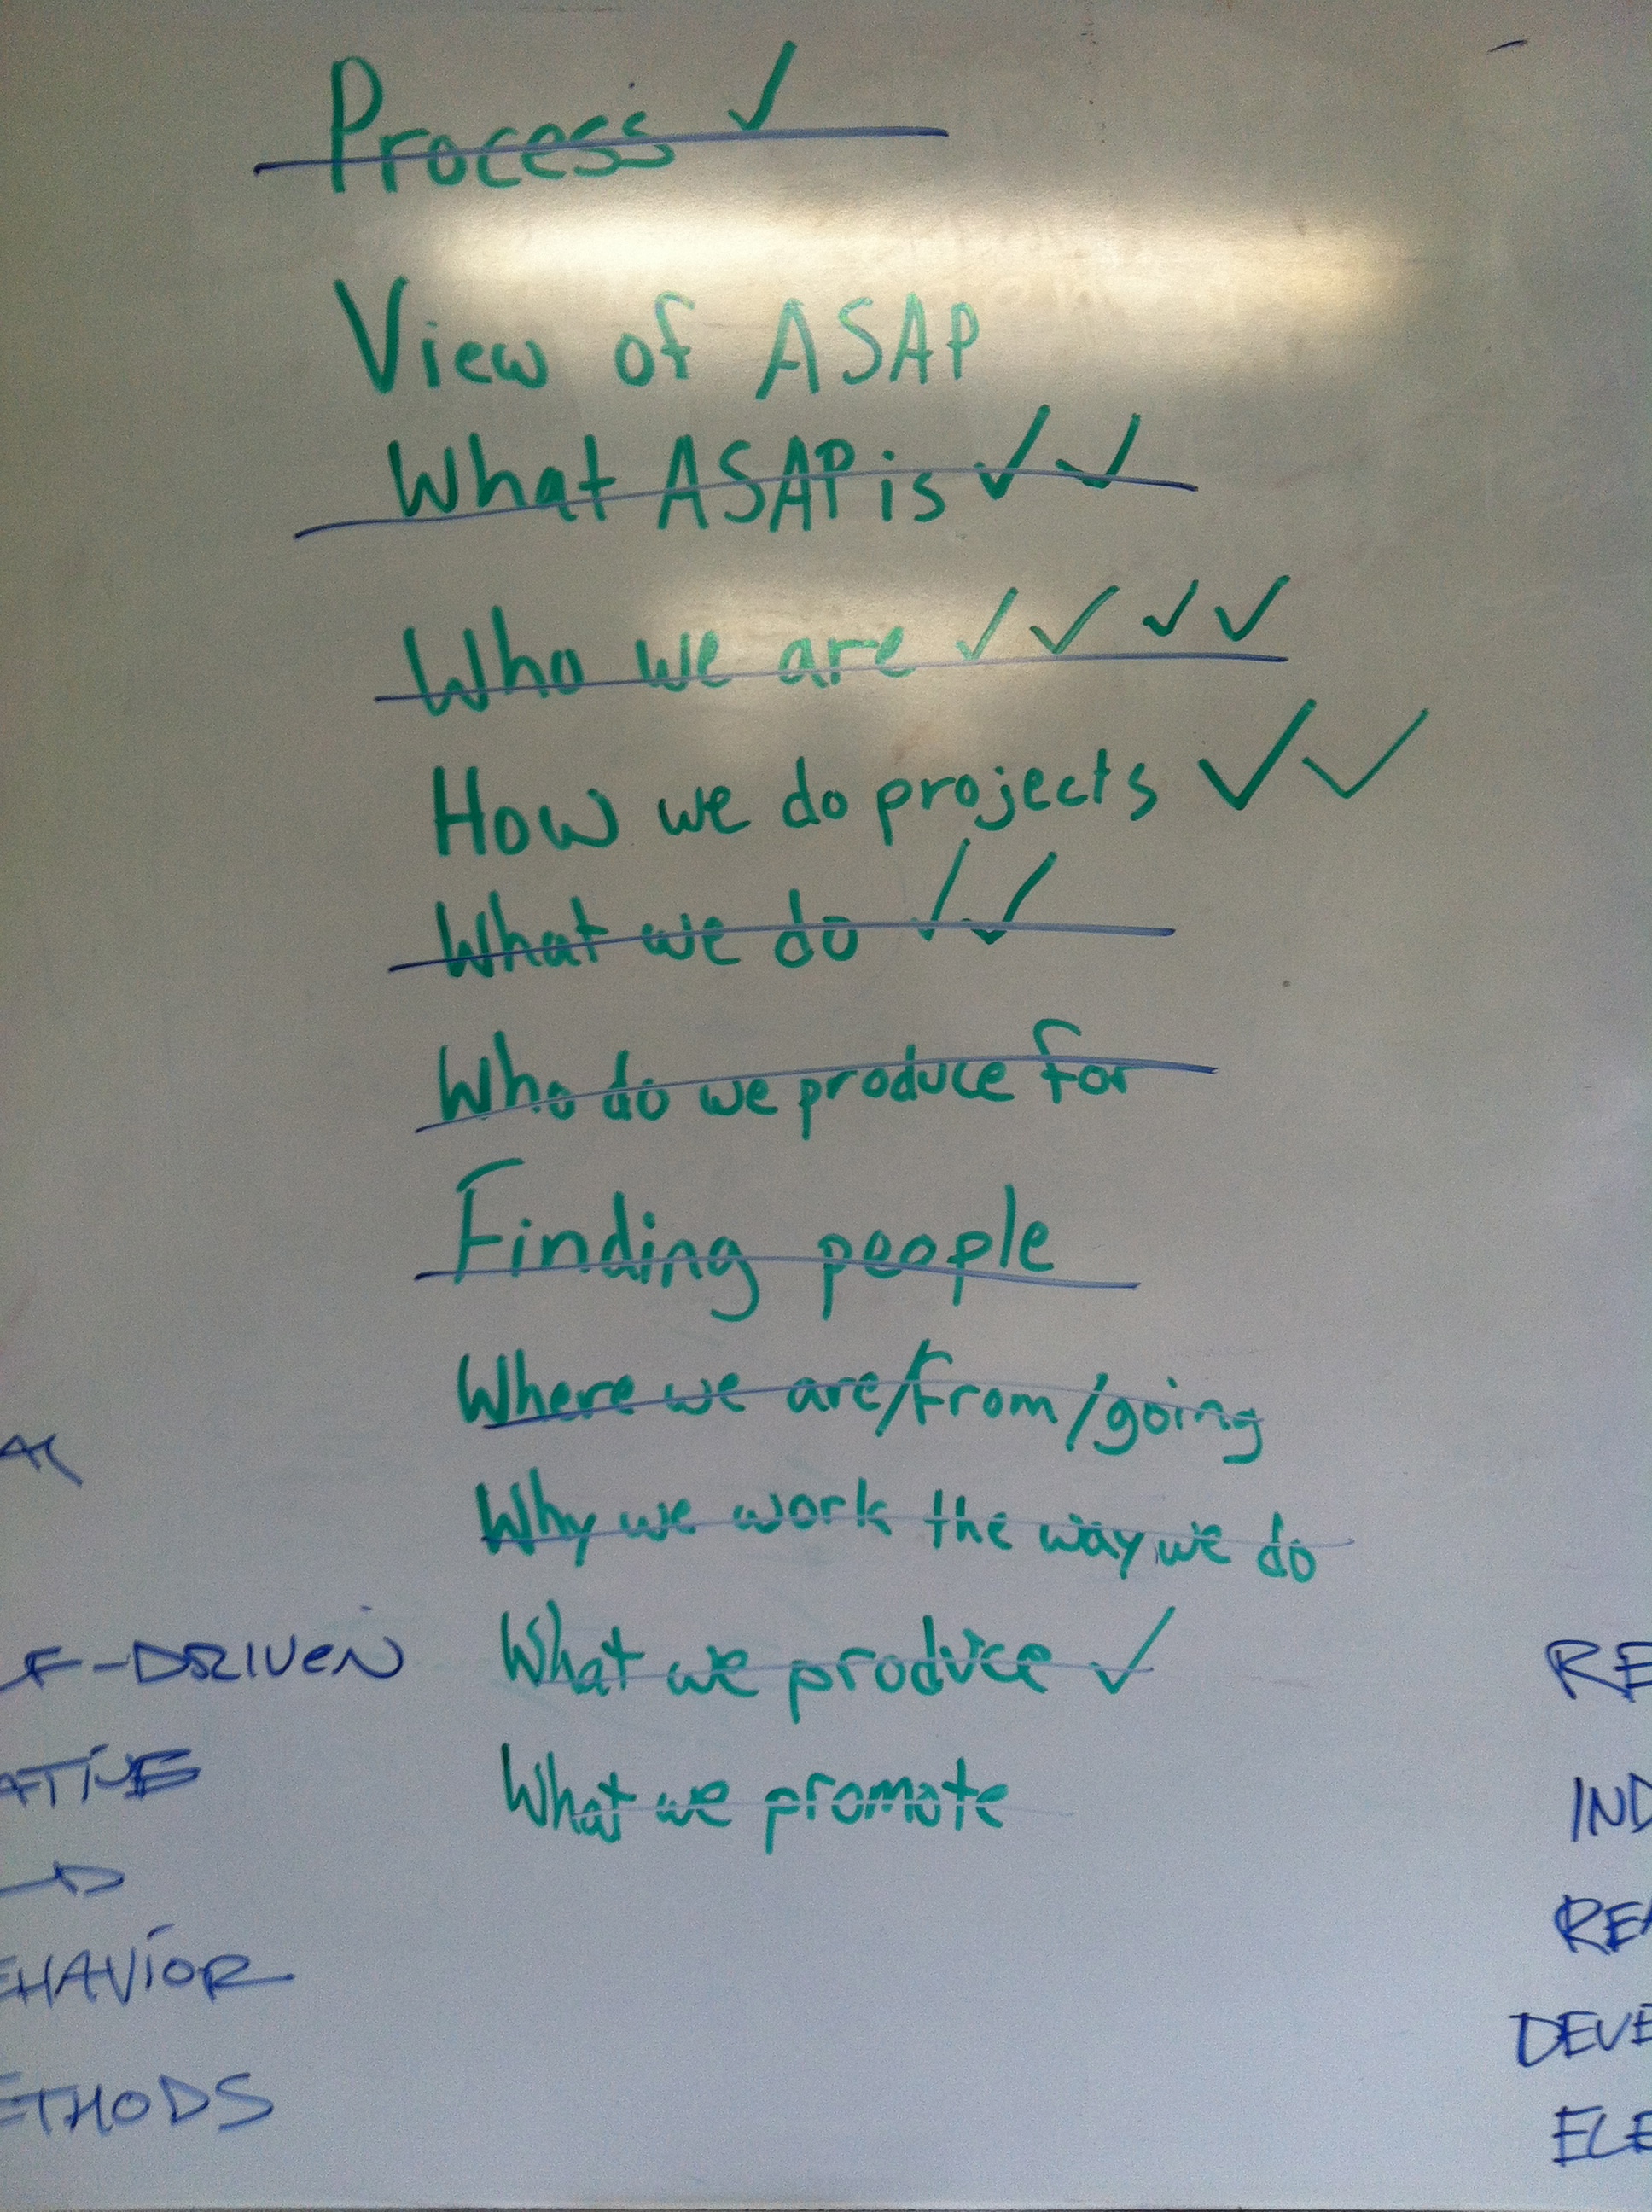 Process ✓
View of ASAP
What ASAP is ✓ ✓
Who we are ✓ ✓ ✓ ✓
How we do projects ✓ ✓
What we do ✓ ✓
Who do we produce for
Finding people
Where we are/from/going
Why we work the way we do
What we produce ✓
What we promote
F-DRIVEN
ATIVE
EHAVIOR
ETHODS
RE
IND
REA
DEVE
ELE